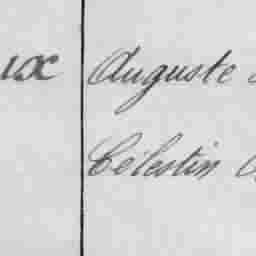 ux Auguste
Célestin